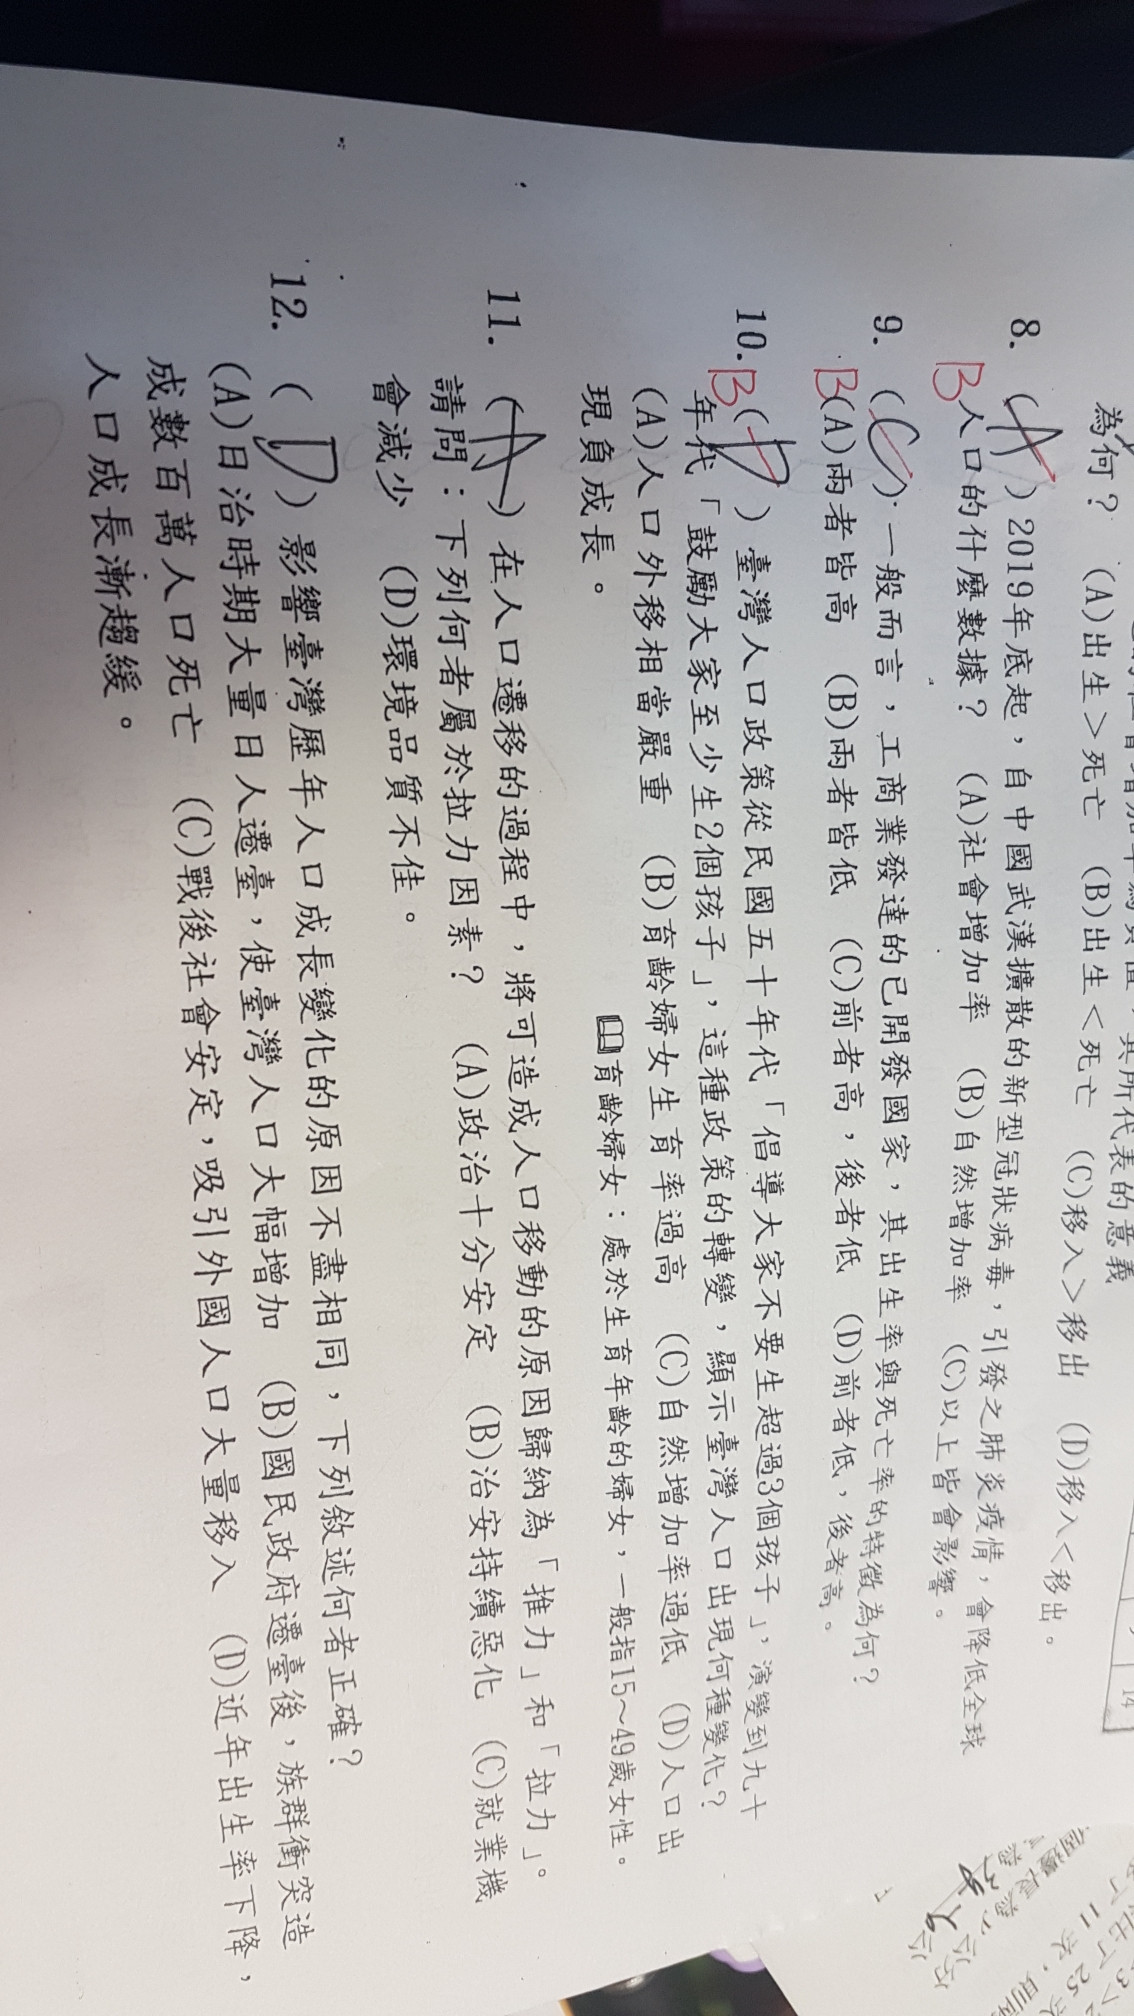 為何？ (A)出生＞死亡 (B)出生＜死亡 (C)移入＞移出 (D)移入＜移出。
8. ( A ) 2019年底起，自中國武漢擴散的新型冠狀病毒，引發之肺炎疫情，會降低全球
B 人口的什麼數據？ (A)社會增加率 (B)自然增加率 (C)以上皆會影響。
9. ( C ) 一般而言，工商業發達的已開發國家，其出生率與死亡率的特徵為何？
B (A)兩者皆高 (B)兩者皆低 (C)前者高，後者低 (D)前者低，後者高。
10. B ( D ) 臺灣人口政策從民國五十年代「倡導大家不要生超過3個孩子」，演變到九十
年代「鼓勵大家至少生2個孩子」，這種政策的轉變，顯示臺灣人口出現何種變化？
(A)人口外移相當嚴重 (B)育齡婦女生育率過高 (C)自然增加率過低 (D)人口出
現負成長。
育齡婦女：處於生育年齡的婦女，一般指15～49歲女性。
11. ( A ) 在人口遷移的過程中，將可造成人口移動的原因歸納為「推力」和「拉力」。
請問：下列何者屬於拉力因素？ (A)政治十分安定 (B)治安持續惡化 (C)就業機
會減少 (D)環境品質不佳。
12. ( D ) 影響臺灣歷年人口成長變化的原因不盡相同，下列敘述何者正確？
(A)日治時期大量日人遷臺，使臺灣人口大幅增加 (B)國民政府遷臺後，族群衝突造
成數百萬人口死亡 (C)戰後社會安定，吸引外國人口大量移入 (D)近年出生率下降，
人口成長漸趨緩。
14